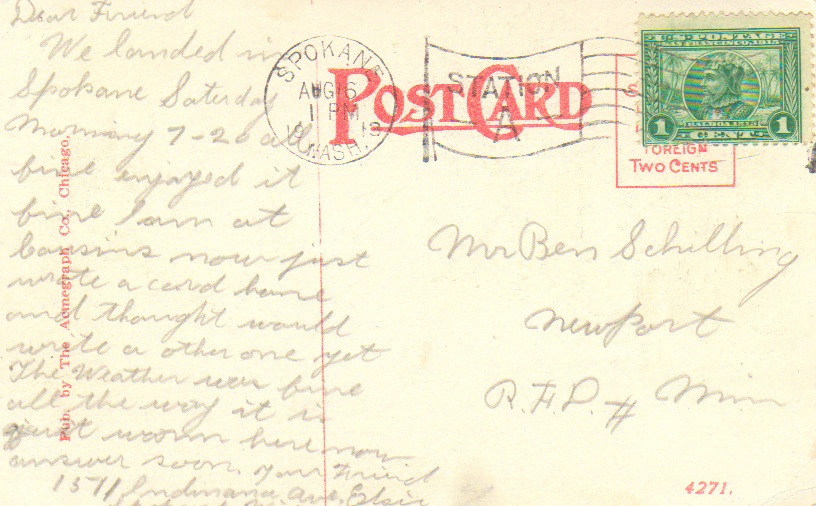 Dear Friend
We landed in
Spokane Saterday
Morning 7-20 a
fine enjoyed it
fine I am at
Cousins now just
wrote a card home
and thought would
write a other one yet
The Weather was fine
all the way it is
just worm here now
answer soon. Your Friend
1511 Indiana Ave. Elsie
Pub. by The Acmegraph Co., Chicago.
SPOKANE
AUG 16
1 PM
WASH.
POST CARD
STATION
A
U.S. POSTAGE
SAN FRANCISCO 1915
BALBOA 1513
1 CENT 1
FOREIGN
TWO CENTS
Mr Ben Schilling
Newport
R.F.D. # Minn
4271.